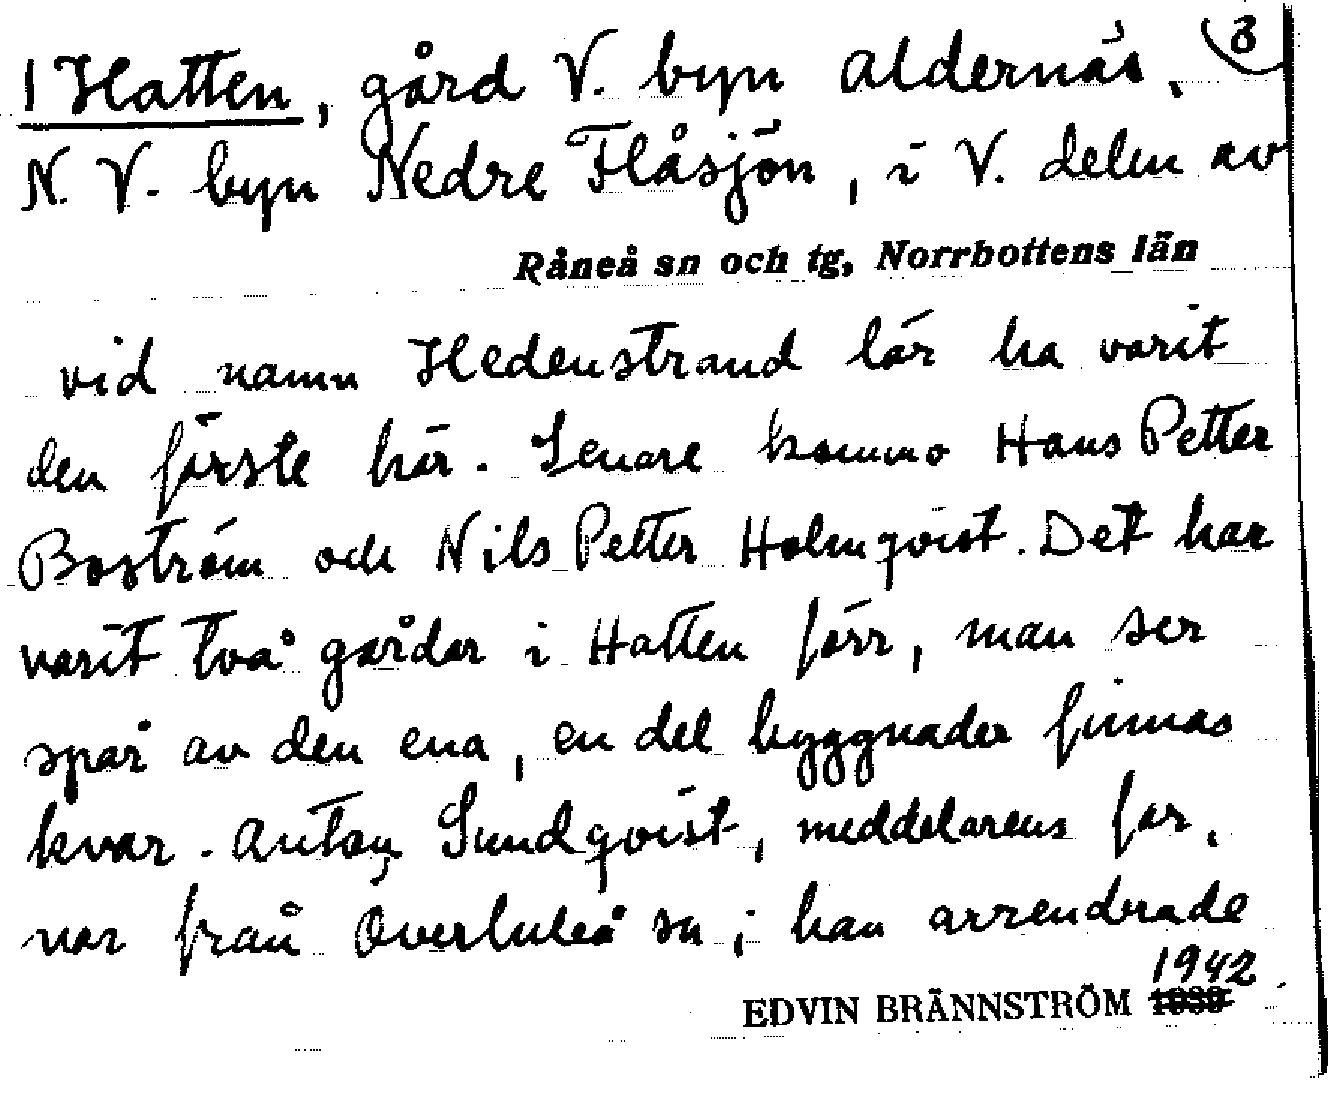 1 Hatten, gård V. byn Aldernäs, 3
N. V. byn Nedre Flåsjön, i V. delen av
Råneå sn och tg, Norrbottens län
vid namn Hedenstrand lär ha varit
den förste här. Senare kommo Hans Petter
Boström och Nils Petter Holmqvist. Det har
varit två gårdar i Hatten förr, man ser
spår av den ena, en del byggnader finnas
kvar. Anton Sundqvist, meddelarens far,
var från Överluleå sn; han arrenderade
EDVIN BRÄNNSTRÖM 1942